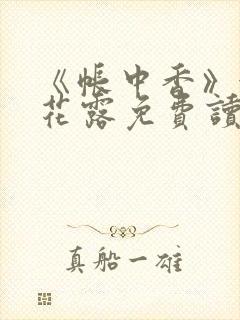 《帳中香》
花露免費讀
真船一雄